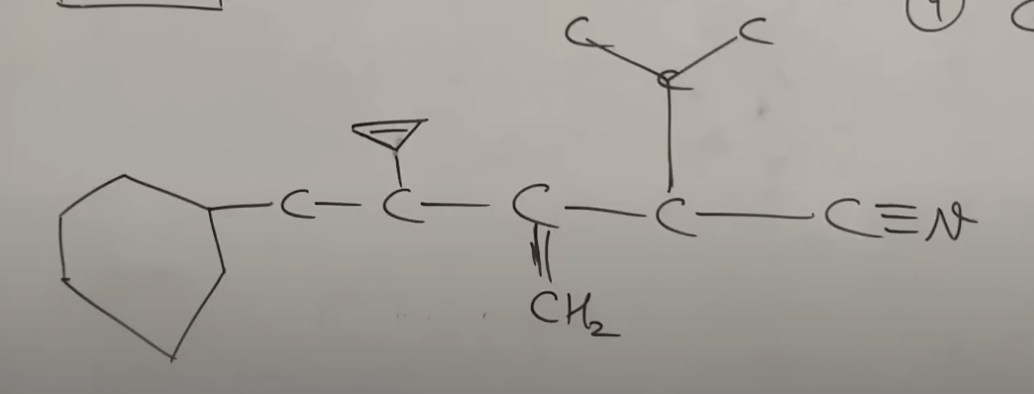 4 C
C C
C
C - C - C - C - C≡N
CH2